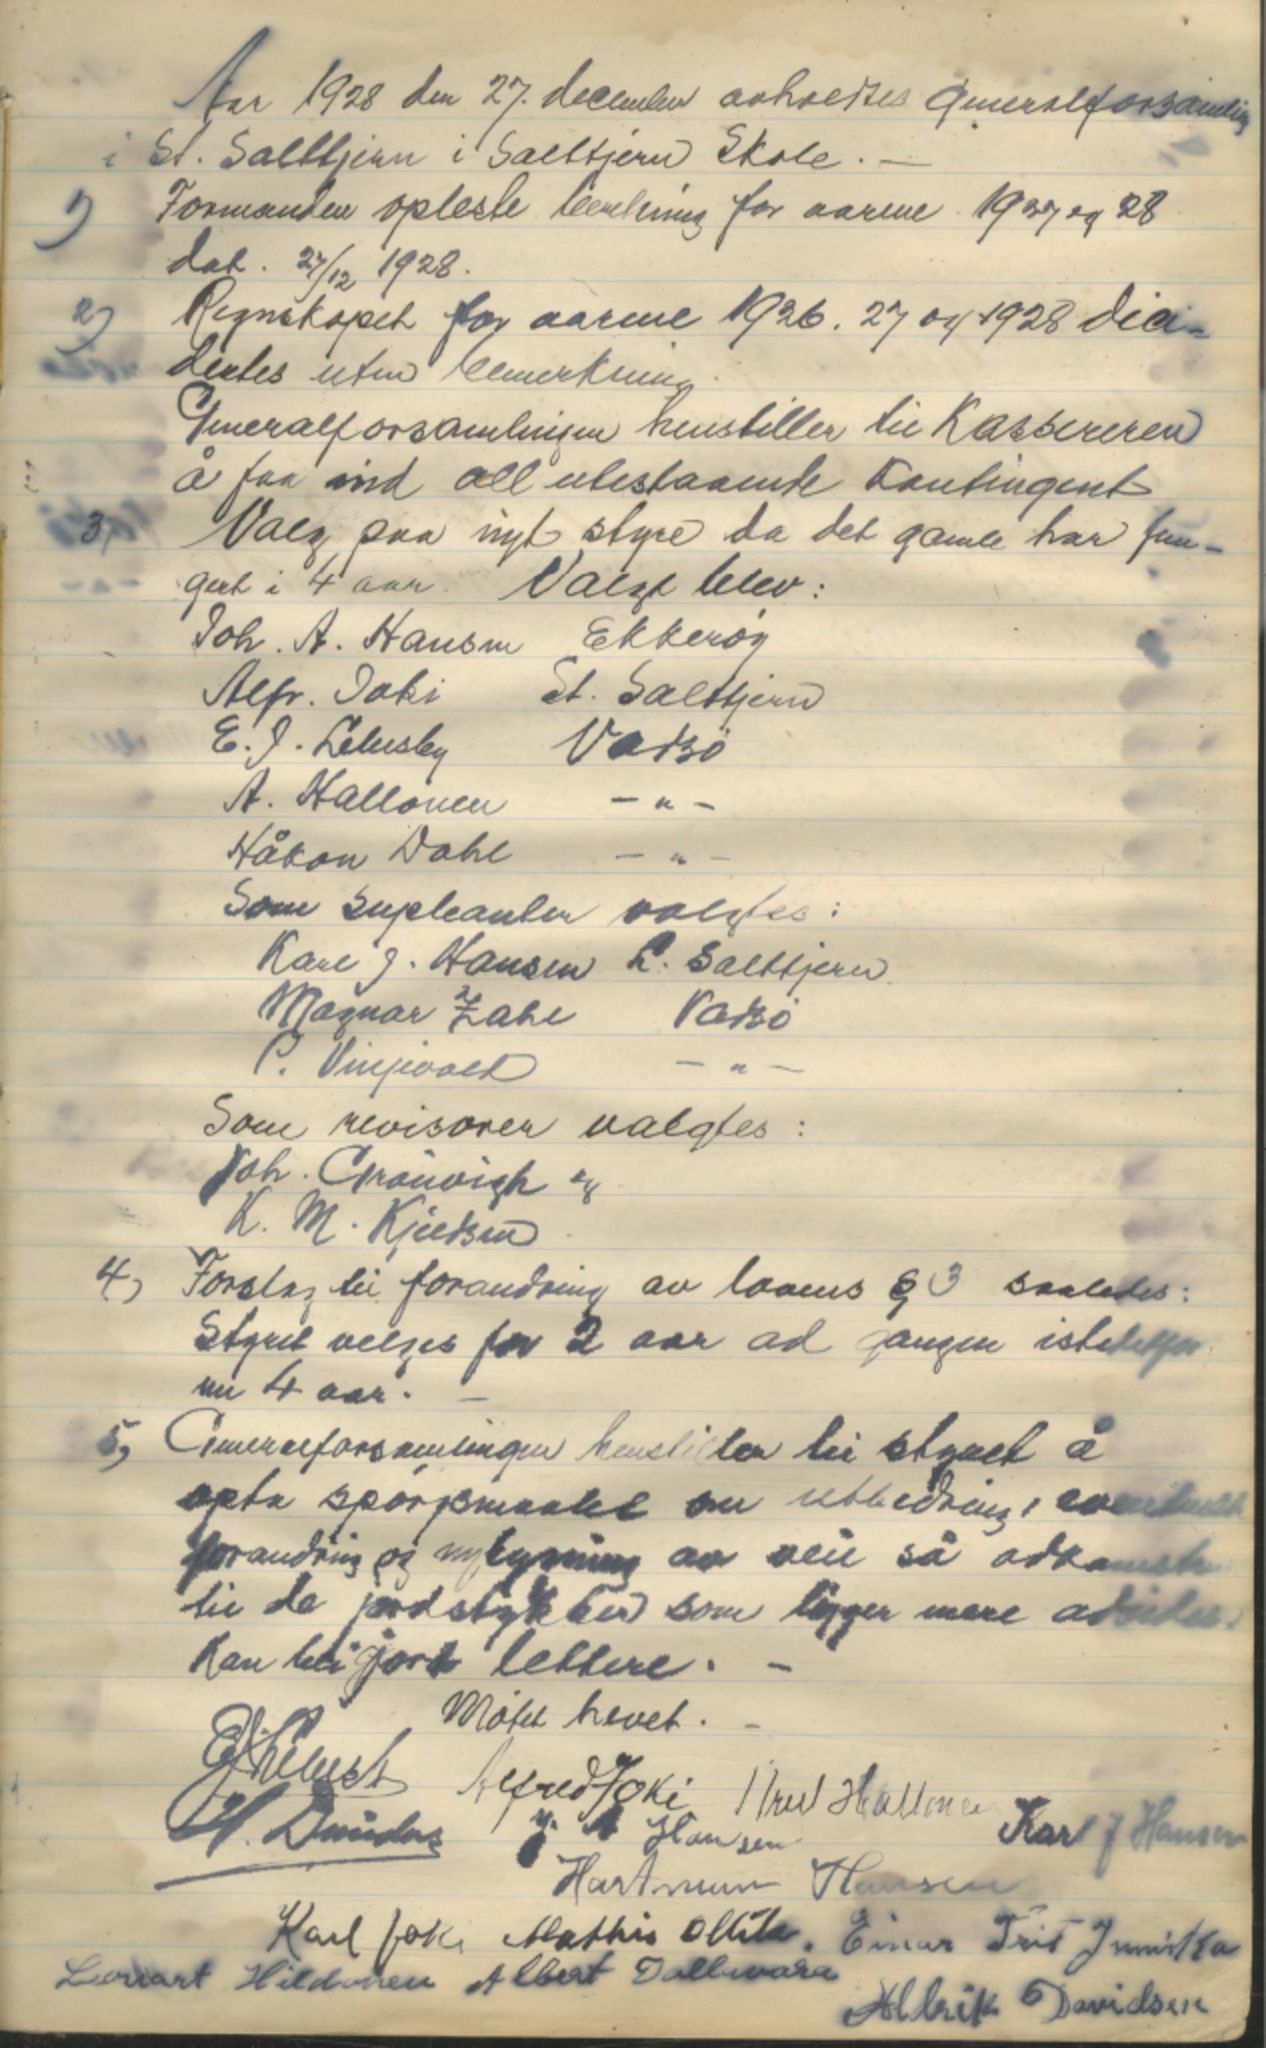 Aar 1928 den 27. december avholdtes Generalforsamling
i St. Saltkjern i Saltkjern Skole. —
1) Formanden opleste beretning for aarene 1927 og 28
dat. 27/12 1928.
2) Regnskapet for aarene 1926. 27 og 1928 deci-
dertes uten bemerkning.
Generalforsamlingen henstiller til Kassereren
å faa ind all utestaaende Kontingent
3, Valg paa nyt styre da det gamle har fun-
gert i 4 aar. Valgt blev:
Joh. A. Hansen Ekkerøy
Alfr. Joki St. Saltkjern
E. J. Vadsö
A. Hallonen — " —
Håkon Dahl — " —
Som supleanter valgtes:
Karl J. Hansen L. Saltkjern
Magnar Zahl Vadsö
P. — " —
Som revisorer valgtes:
Joh. Grönvigh og
K. M. Kjeldsen
4, Forslag til forandring av lovens § 3 saaledes:
Styret velges for 2 aar ad gangen istedetfor
nu 4 aar. —
5, Generalforsamlingen henstiller til styret å
opta spörgsmaalet om utbedring, eventuelt
forandring og av veie så adkomsten
til de jordstykker som ligger mere avsides
kan bli gjort lettere. —
Mötet hevet. —
Alfred Joki Hallonen
J. A. Hansen Karl J Hansen
Hartmann Hansen
Karl Joki Mathis Ollila. Einar
Lennart Hildonen Albert
Albrik Davidsen